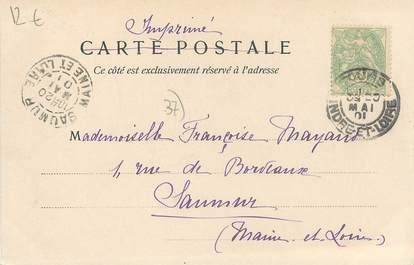 12 €
Imprimé
CARTE POSTALE
Ce côté est exclusivement réservé à l'adresse
SAUMUR
MAINE ET LOIRE
MAI
01
TOURS
MAI
01
INDRE-ET-LOIRE
37
Mademoiselle Françoise Mayaud
1, rue de Bordeaux
Saumur
(Maine et Loire)